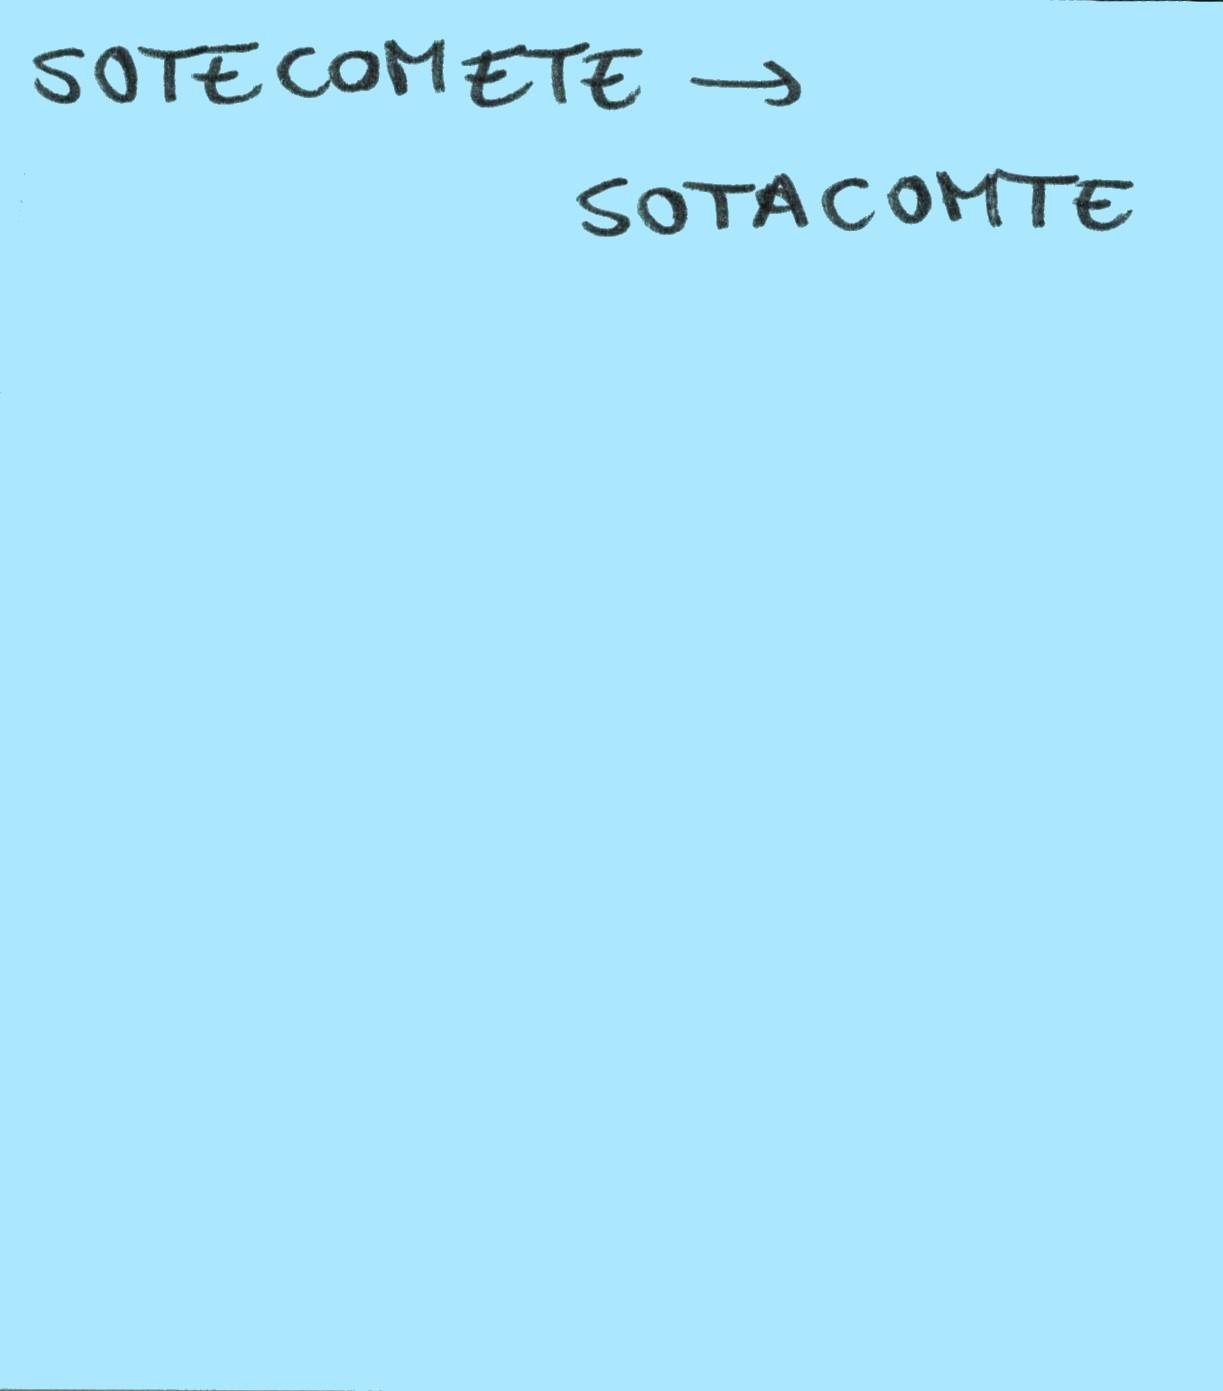 SOTECOMETE →
SOTACOMTE